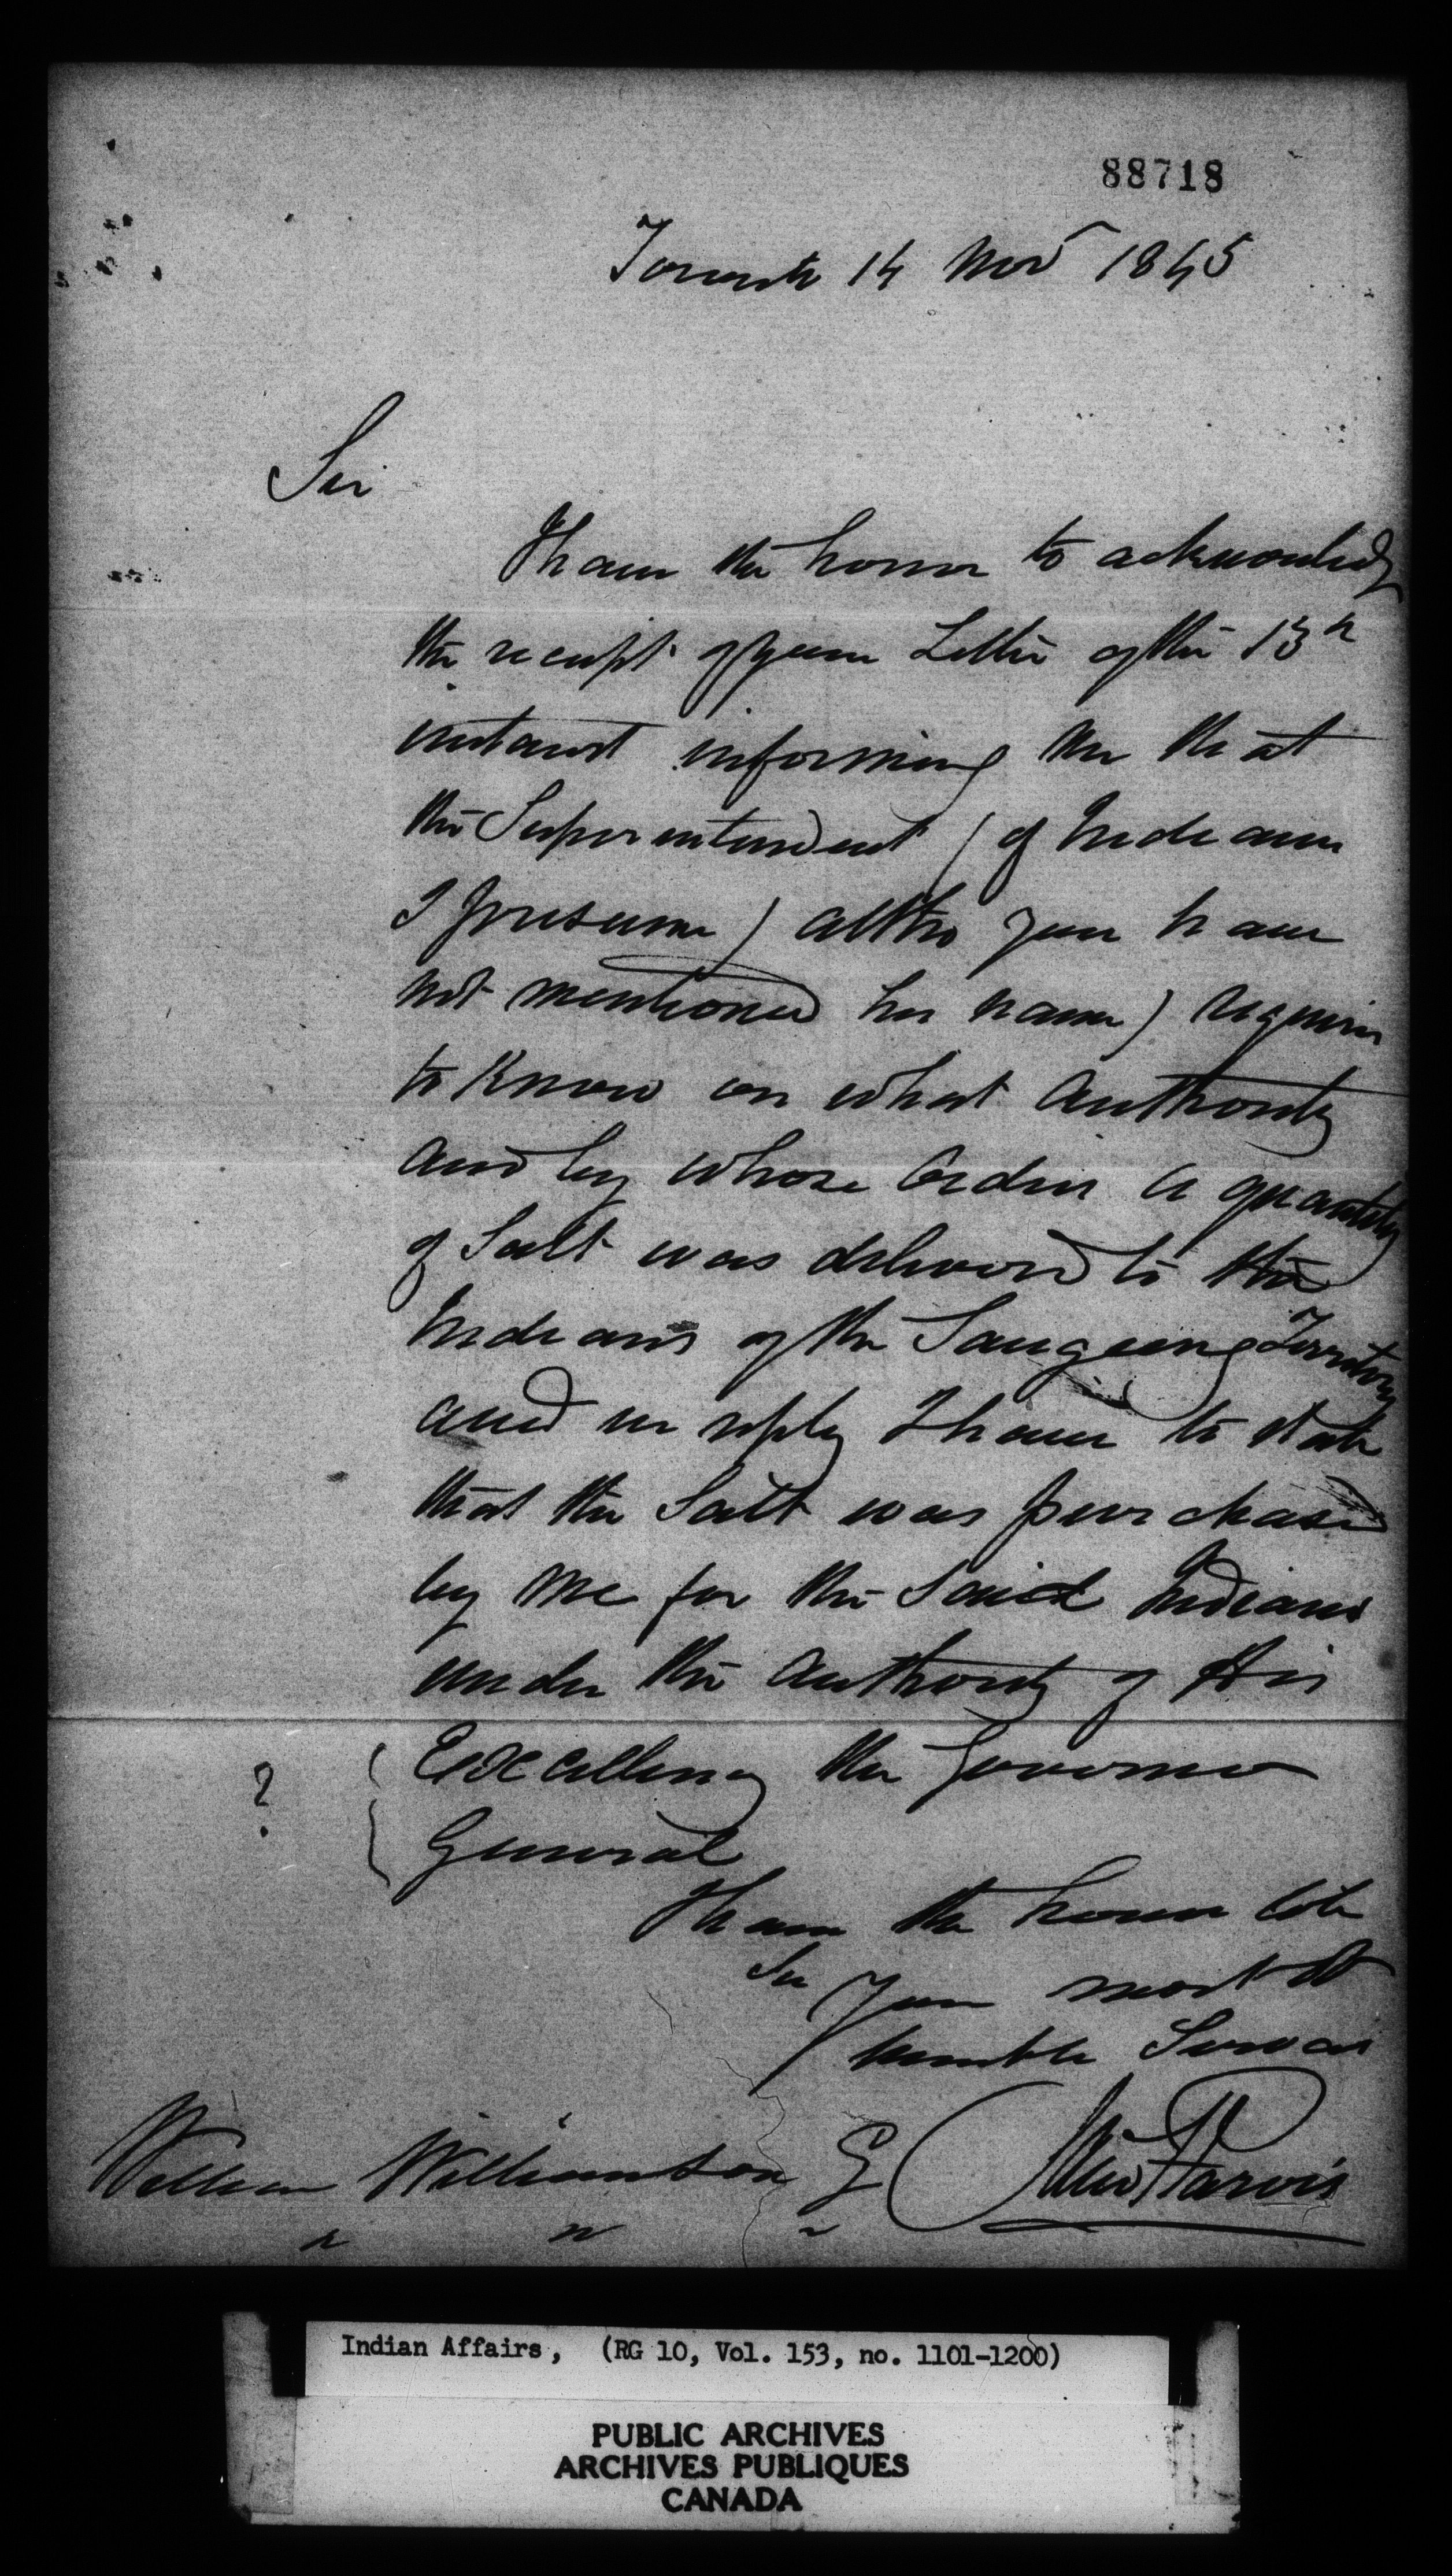 88718
Toronto 14 Novr 1845
Sir
I have the honor to acknowledge
the receipt of your Letter of the 13th
instant informing me that
the Superintendent (of Indians
I presume) altho you have
not mentioned his name) requires
to Know on what authority
and by whose Order a quantity
of Salt was delivered to the
Indians of the Saugeeng Territory
and in reply I have to state
that the Salt was purchased
by me for the said Indians
under the authority of His
? { Excellency the Governor
General
I have the honor to be
Sir Your most Ob
humble Servant
William Williamson E Jarvis
Indian Affairs, (RG 10, Vol. 153, no. 1101-1200)
PUBLIC ARCHIVES
ARCHIVES PUBLIQUES
CANADA